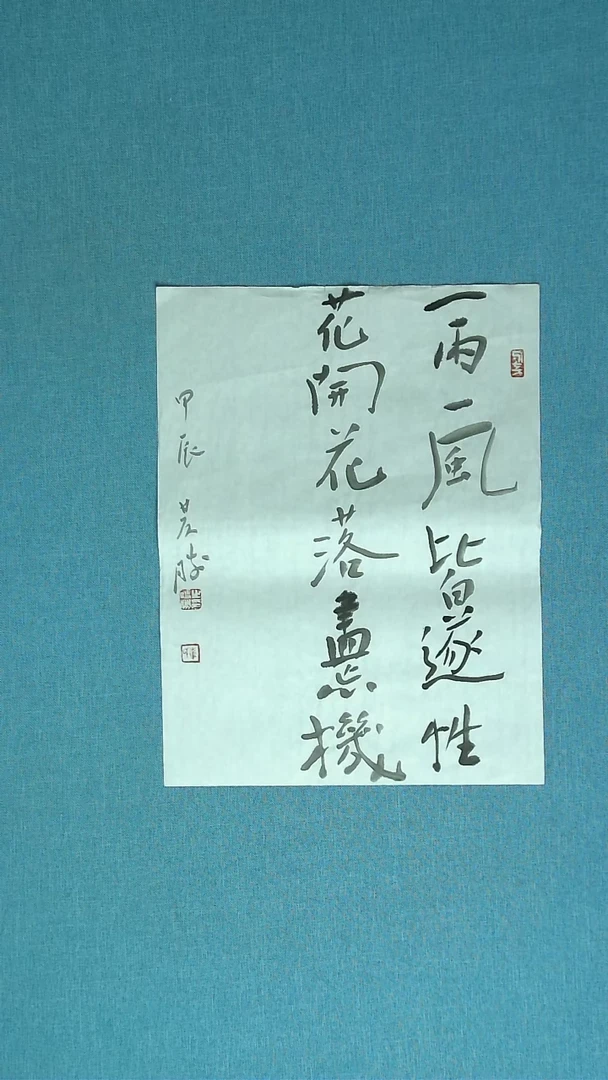 一雨一風皆遂性
花開花落盡忘機
甲辰